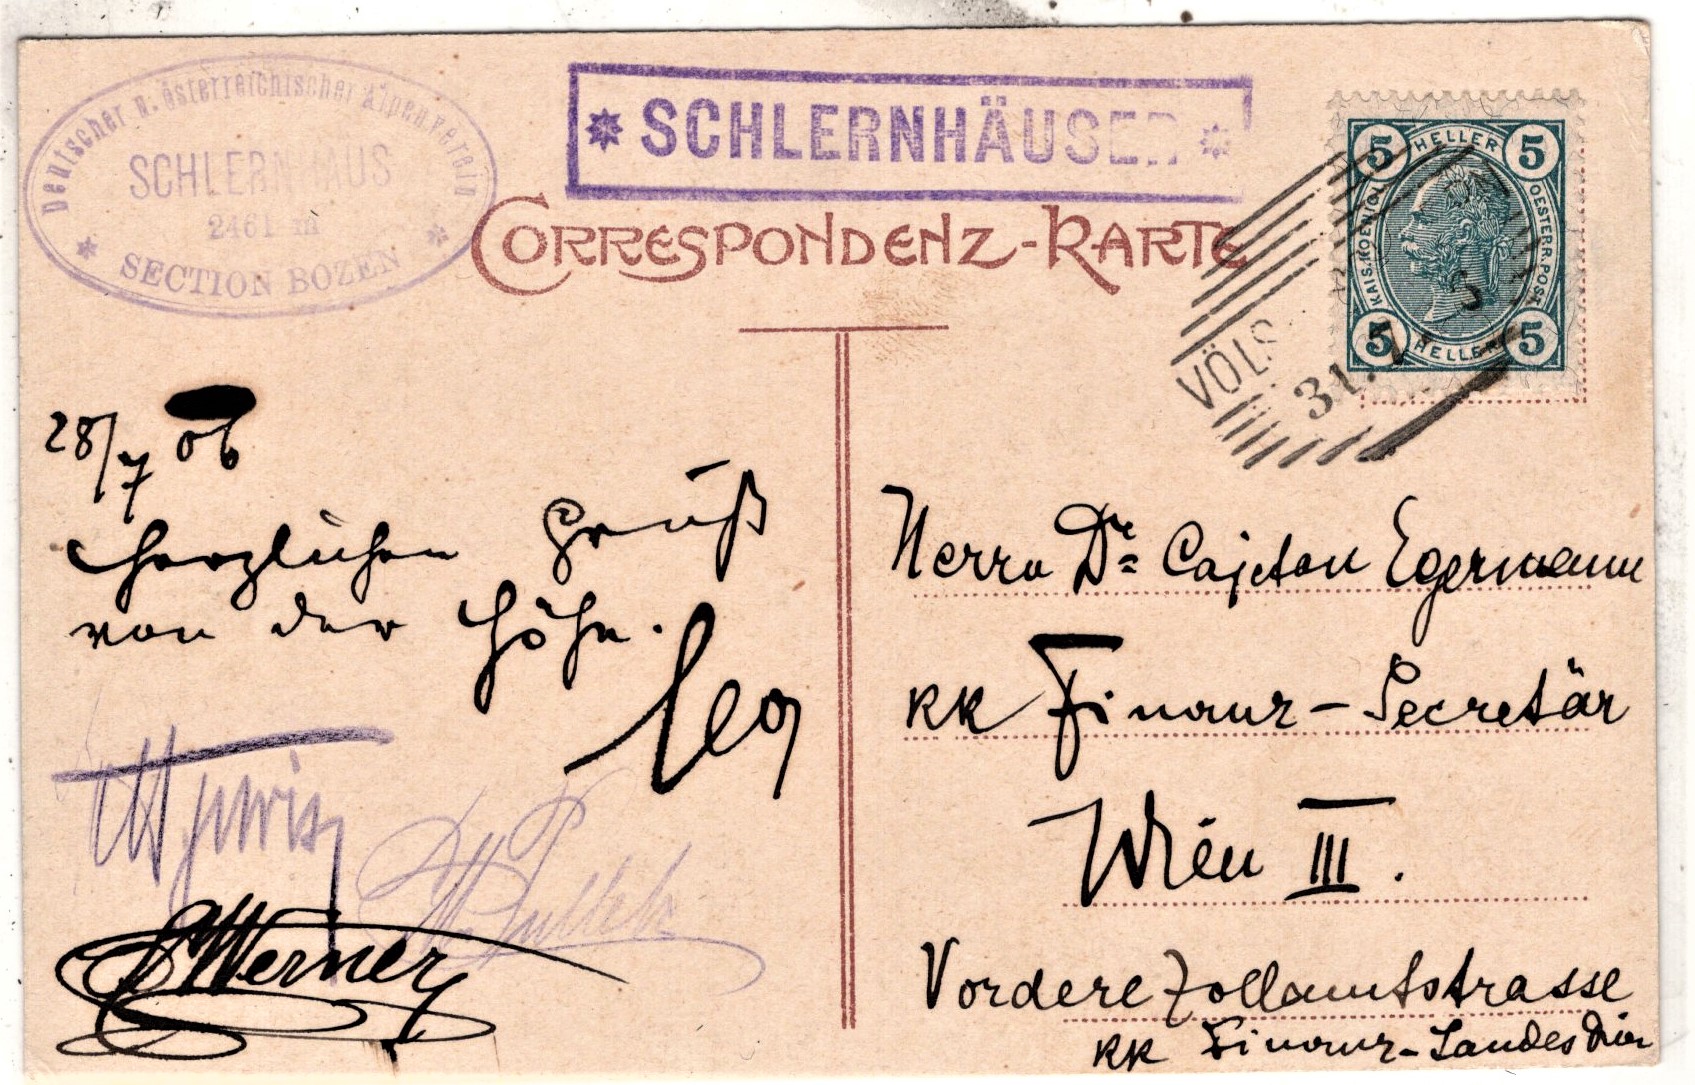 Deutscher u. österreichischer Alpenverein
SCHLERNHAUS
2461 m
* SECTION BOZEN *
* SCHLERNHÄUSER *
CORRESPONDENZ-KARTE
5 HELLER 5
KAIS. KOENIGL. OESTERR. POST
5 HELLER 5
VÖLS
31. 7
28/7 06
Herzlichen Gruß
von der Höhe.
Leo
Werner
Herrn Dr. Cajetan Egermann
KK Finanz-Secretär
Wien III.
Vordere Zollamtsstrasse
KK Finanz-Landes Dion